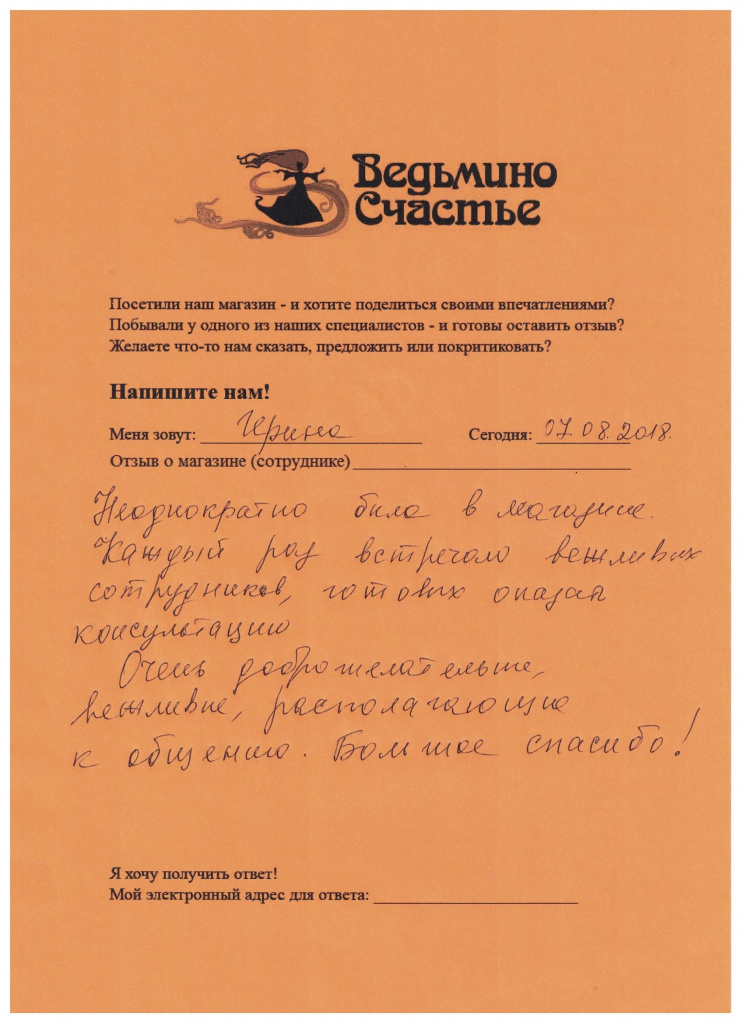 Ведьмино
Счастье
Посетили наш магазин - и хотите поделиться своими впечатлениями?
Побывали у одного из наших специалистов - и готовы оставить отзыв?
Желаете что-то нам сказать, предложить или покритиковать?
Напишите нам!
Меня зовут: Ирина Сегодня: 07.08.2018.
Отзыв о магазине (сотруднике)
Неоднократно была в магазине.
Каждый раз встречала вежливых
сотрудников, готовых оказать
консультацию
Очень доброжелательные,
вежливые, располагающие
к общению. Большое спасибо!
Я хочу получить ответ!
Мой электронный адрес для ответа: